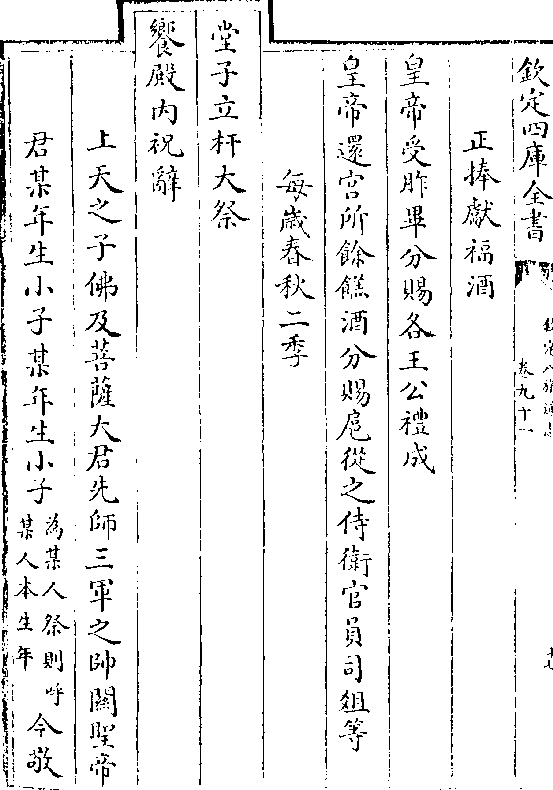 欽定四庫全書
欽定八旗通志
卷九十一
正捧獻福酒
皇帝受胙畢分賜各王公禮成
皇帝還宮所餘餻酒分賜扈從之侍衛官員司俎等
每歲春秋二季
堂子立杆大祭
饗殿內祝辭
上天之子佛及菩薩大君先師三軍之帥關聖帝
君某年生小子某年生小子為某人祭則呼某人本生年今敬